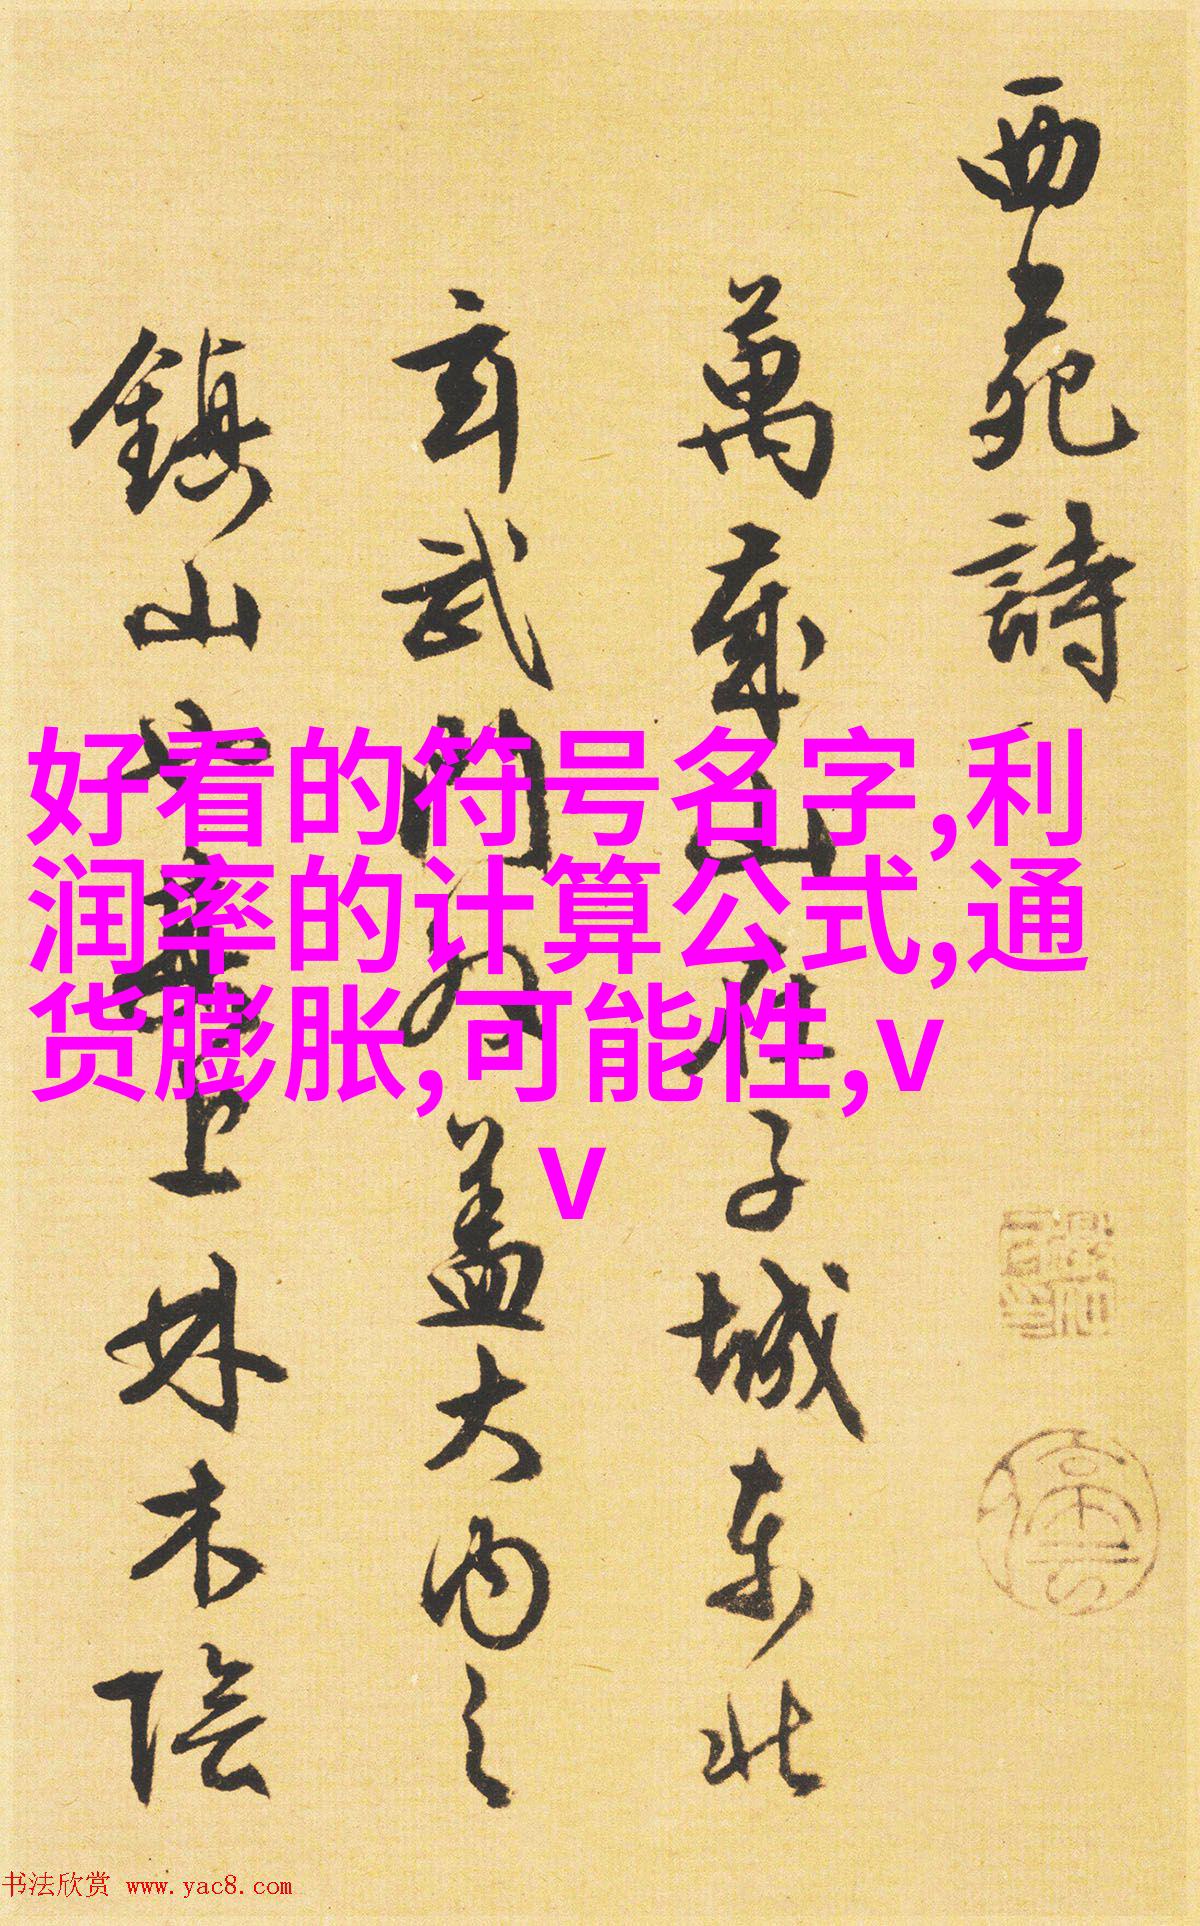 西苑詩
萬歲山在子城東北
玄武門外蓋大内之
鎮山也其上林木陰
好看的符号名字,利
润率的计算公式,通
货膨胀,可能性,v
v
书法欣赏 www.yac8.com